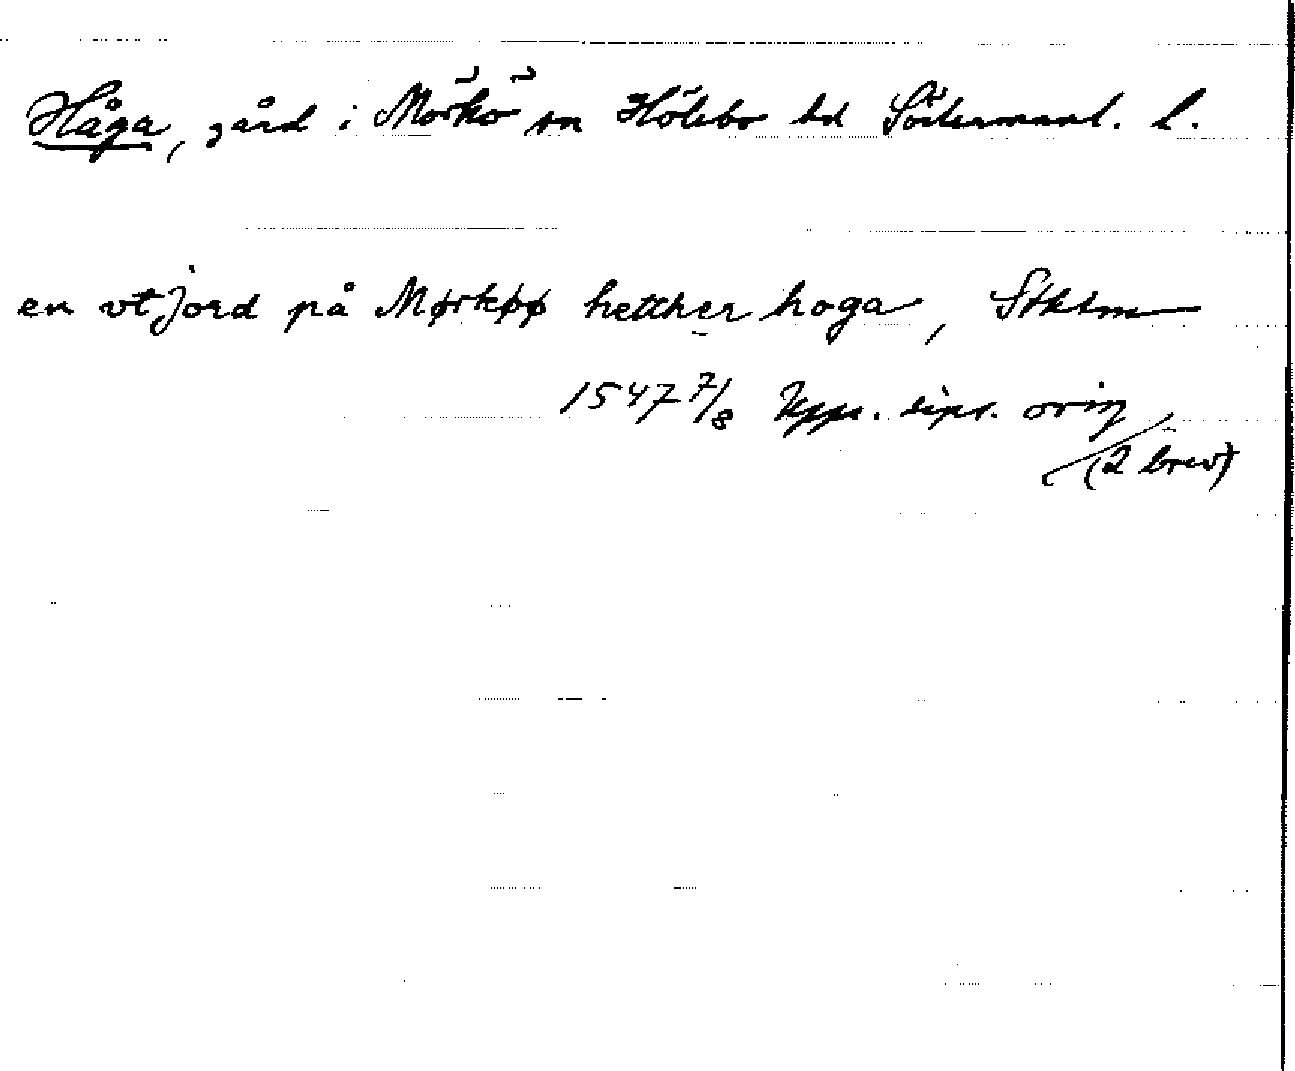 Håga, gård i Mörkö sn Hölebo hd Södermanl. l.
en vtjord på Mørkøø hetther hoga, Sthlm
1547 7/8 Upps. dipl. orig
(2 brev)